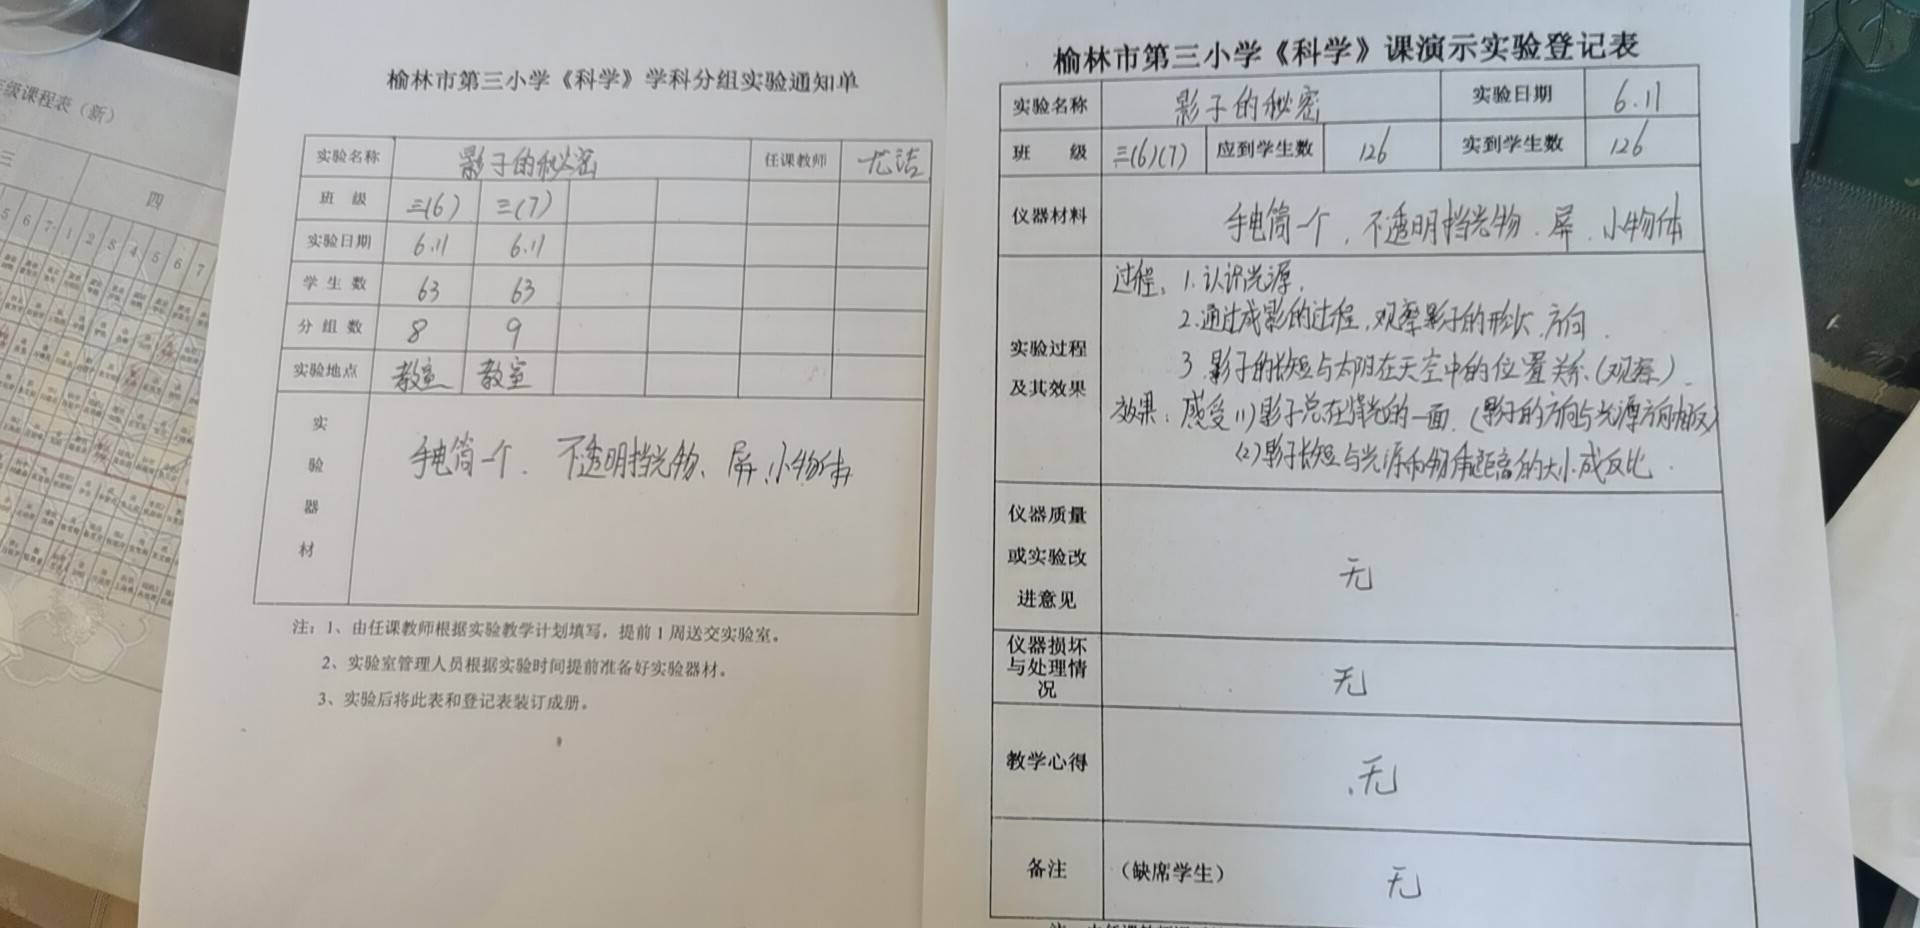 级课程表（新）
三
四
5 6 7 1 2 3 4 5 6 7
榆林市第三小学《科学》学科分组实验通知单
实验名称 影子的秘密 任课教师 尤洁
班 级 三(6) 三(7)
实验日期 6.11 6.11
学 生 数 63 63
分 组 数 8 9
实验地点 教室 教室
实验器材 手电筒一个、不透明挡光物、屏、小物体
注：1、由任课教师根据实验教学计划填写，提前1周送交实验室。
2、实验室管理人员根据实验时间提前准备好实验器材。
3、实验后将此表和登记表装订成册。
榆林市第三小学《科学》课演示实验登记表
实验名称 影子的秘密 实验日期 6.11
班 级 三(6)(7) 应到学生数 126 实到学生数 126
仪器材料 手电筒一个，不透明挡光物．屏．小物体
实验过程
及其效果
过程：1.认识光源．
2.通过成影的过程，观察影子的形状．方向．
3.影子的长短与太阳在天空中的位置关系．(观察)．
效果：感受(1)影子总在背光的一面．(影子的方向与光源方向相反)
(2)影子长短与光源和物体距离的大小成反比．
仪器质量
或实验改
进意见
无
仪器损坏
与处理情
况
无
教学心得 无
备注 （缺席学生） 无